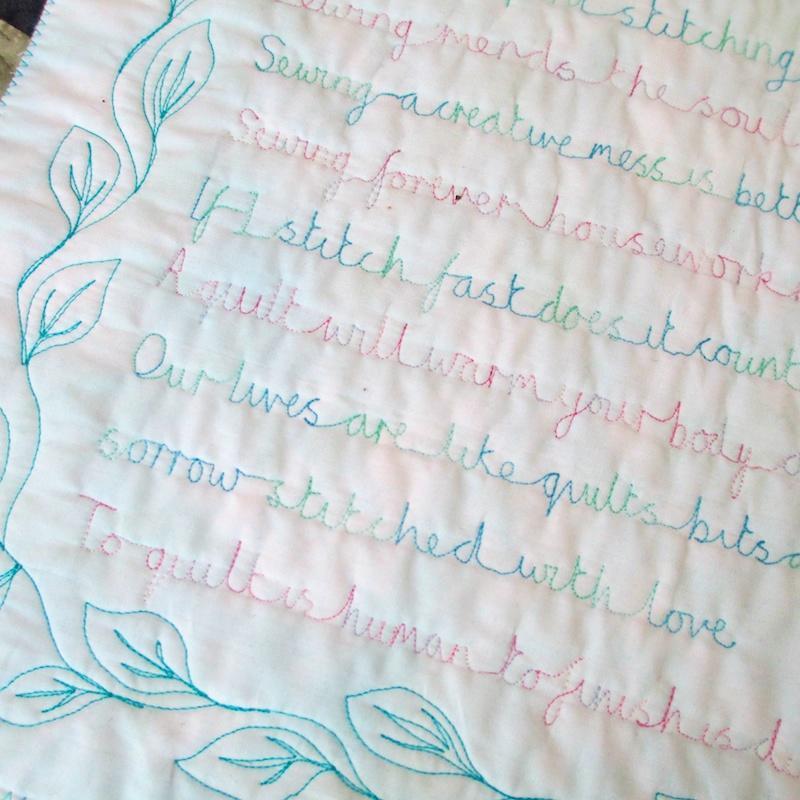 stitching
Sewing mends the soul
Sewing a creative mess is
Sewing forever housework
If I stitch fast does it count
A quilt will warm your body
Our lives are like quilts bits
sorrow stitched with love
To quilt is human to finish is